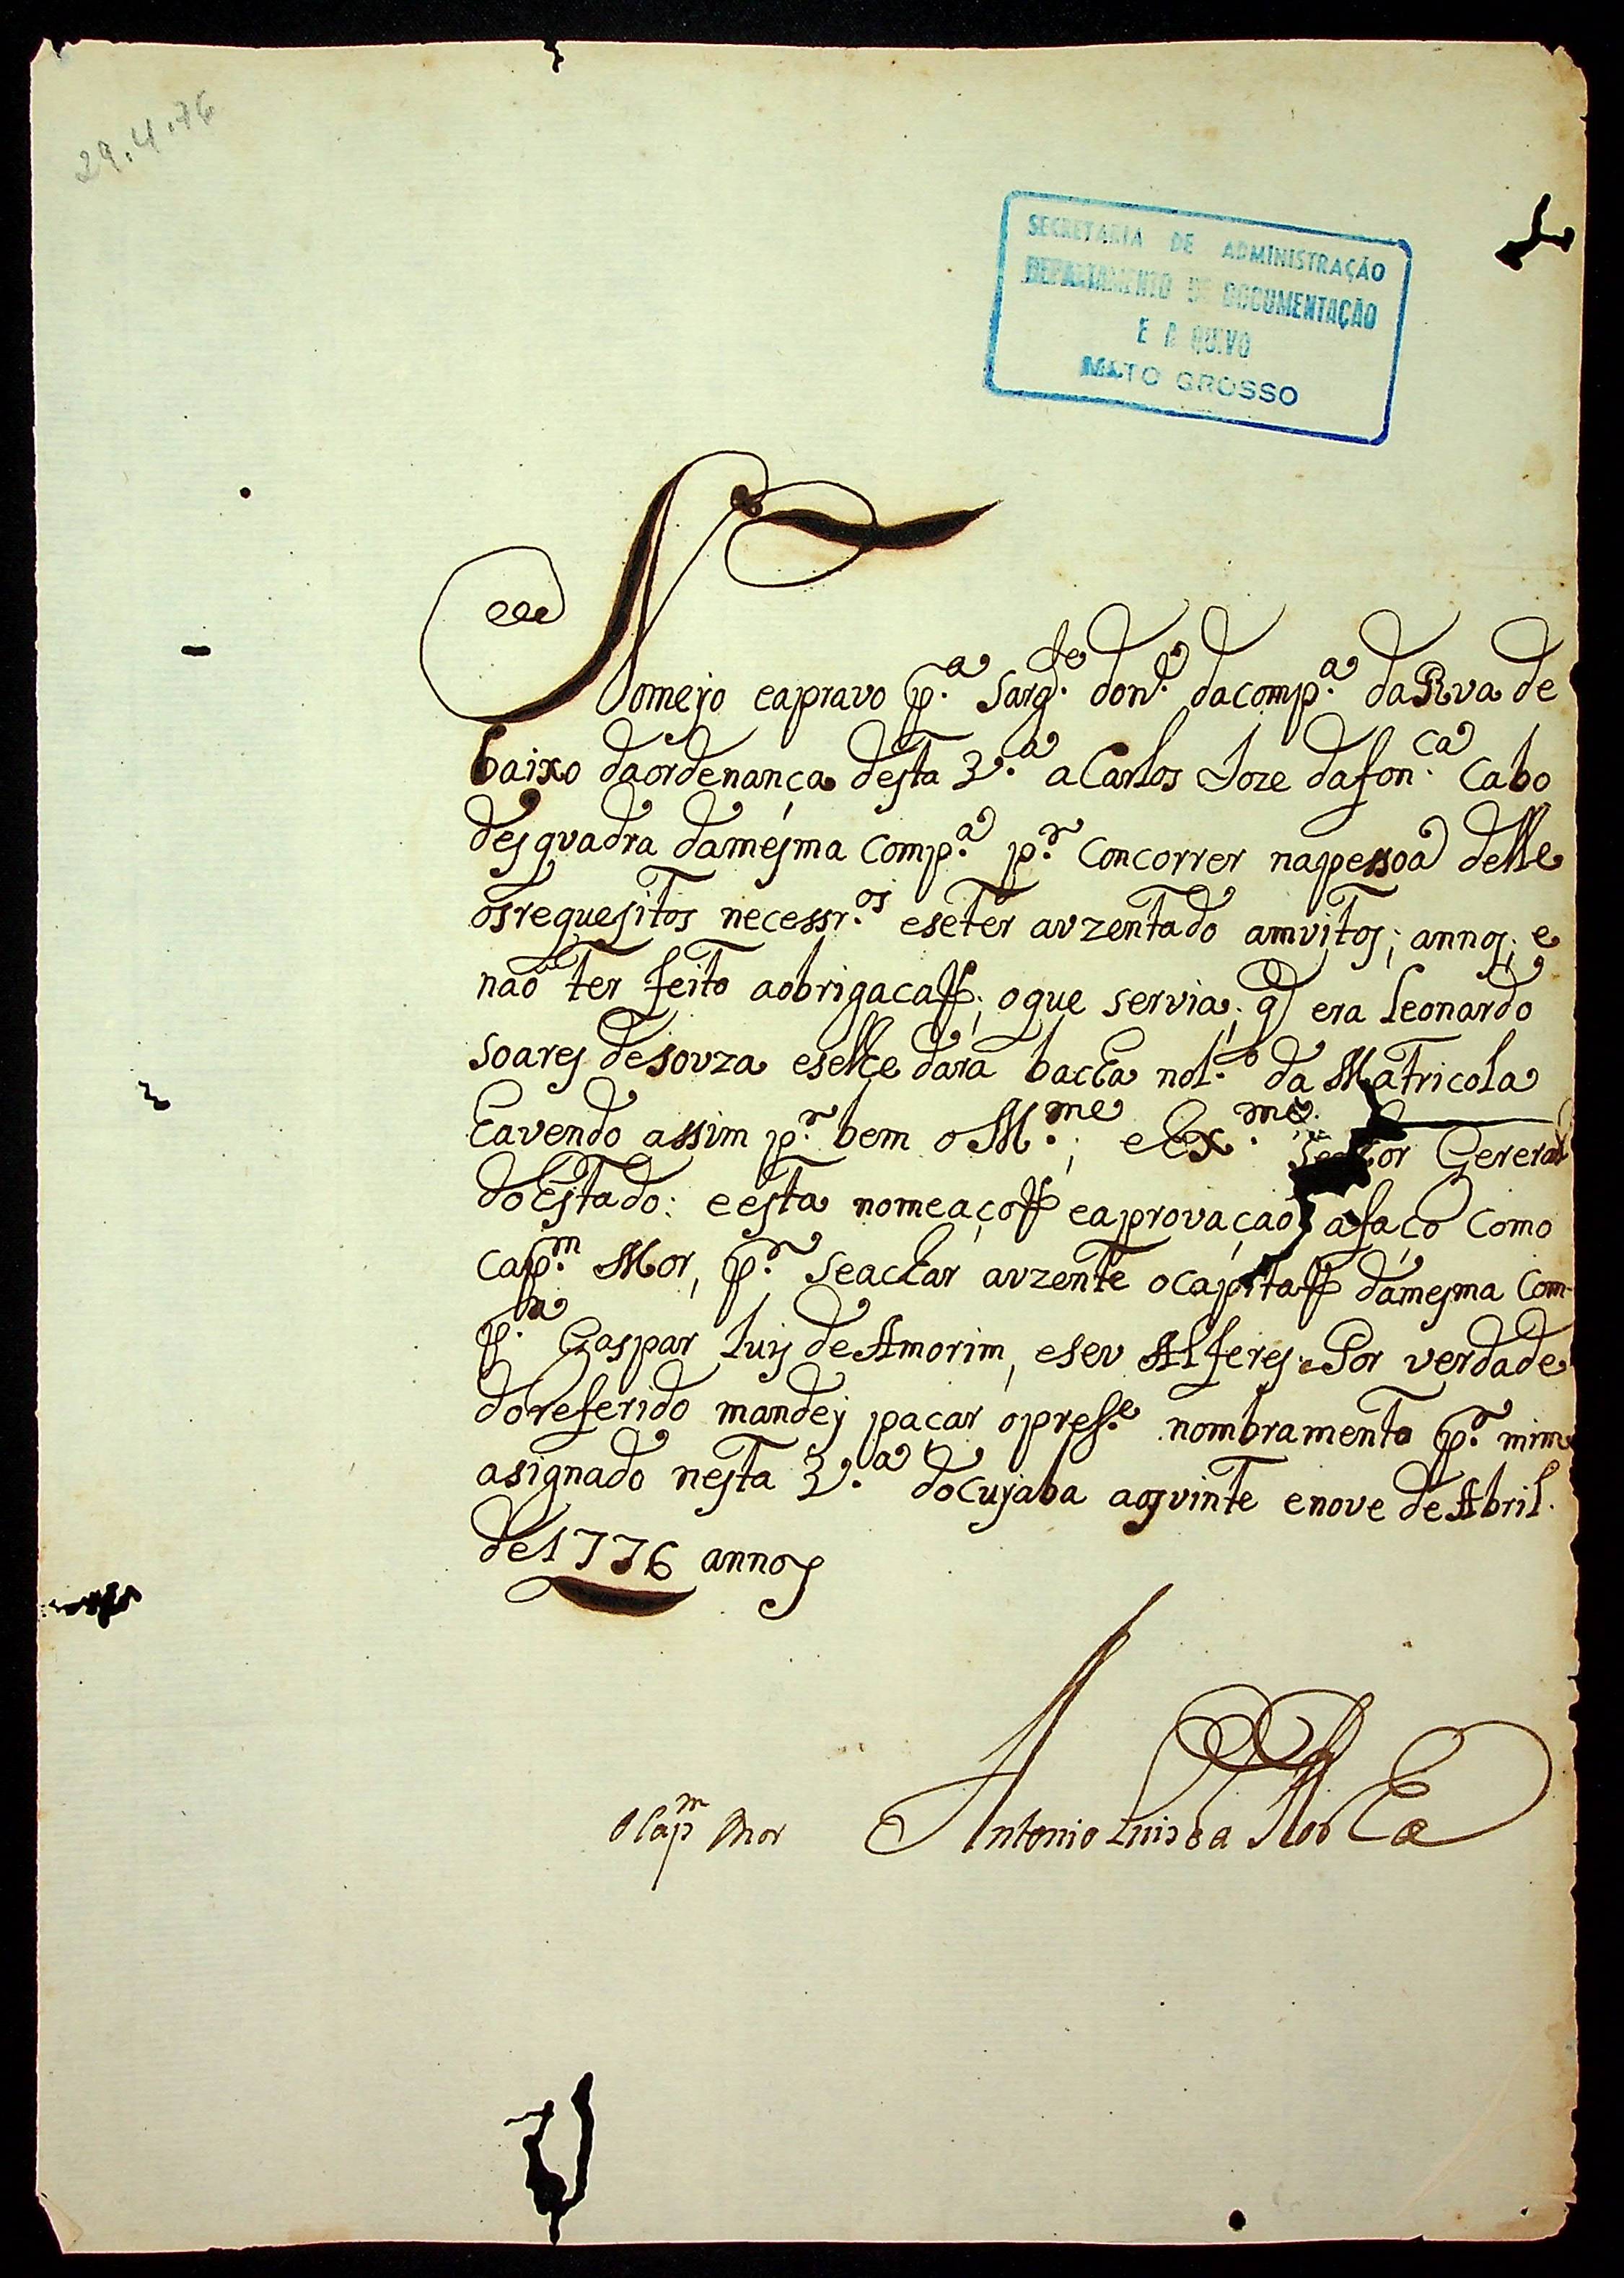 29.4.76
SECRETARIA DE ADMINISTRAÇÃO
DEPARTAMENTO DE DOCUMENTAÇÃO
E ARQUIVO
MATO GROSSO
Nomejo eapravo p.ª Sarg.te don.º dacomp.ª daRua de
baixo daordenança desta V.ª aCarlos Joze dafon.ca Cabo
desquadra damesma Comp.ª p.r Concorrer napessoa delle
osrequesitos necessr.os eseter auzentado amuitos; annos; e
não ter feito aobrigacaõ; oque servia; q̃ era Leonardo
Soares deSouza eselhe dará bacha nol.º da Matricola
havendo assim p.r bem oIll.me; eEx.me Senhor General
doEstado: eesta nomeaçoõ eaprovaçaõ afaço Como
cap.m Mor, p.r Seachar auzente ocapitaõ damesma Com-
p.ª Gaspar Luis deAmorim, eseu Alferes. Por verdade
doreferido mandey paçar opres.e nombramento p.r mim
asignado nesta V.ª doCuyaba aosvinte enove deAbril.
de1776 annos
O Cap.m Mor Antonio Luis da Rocha